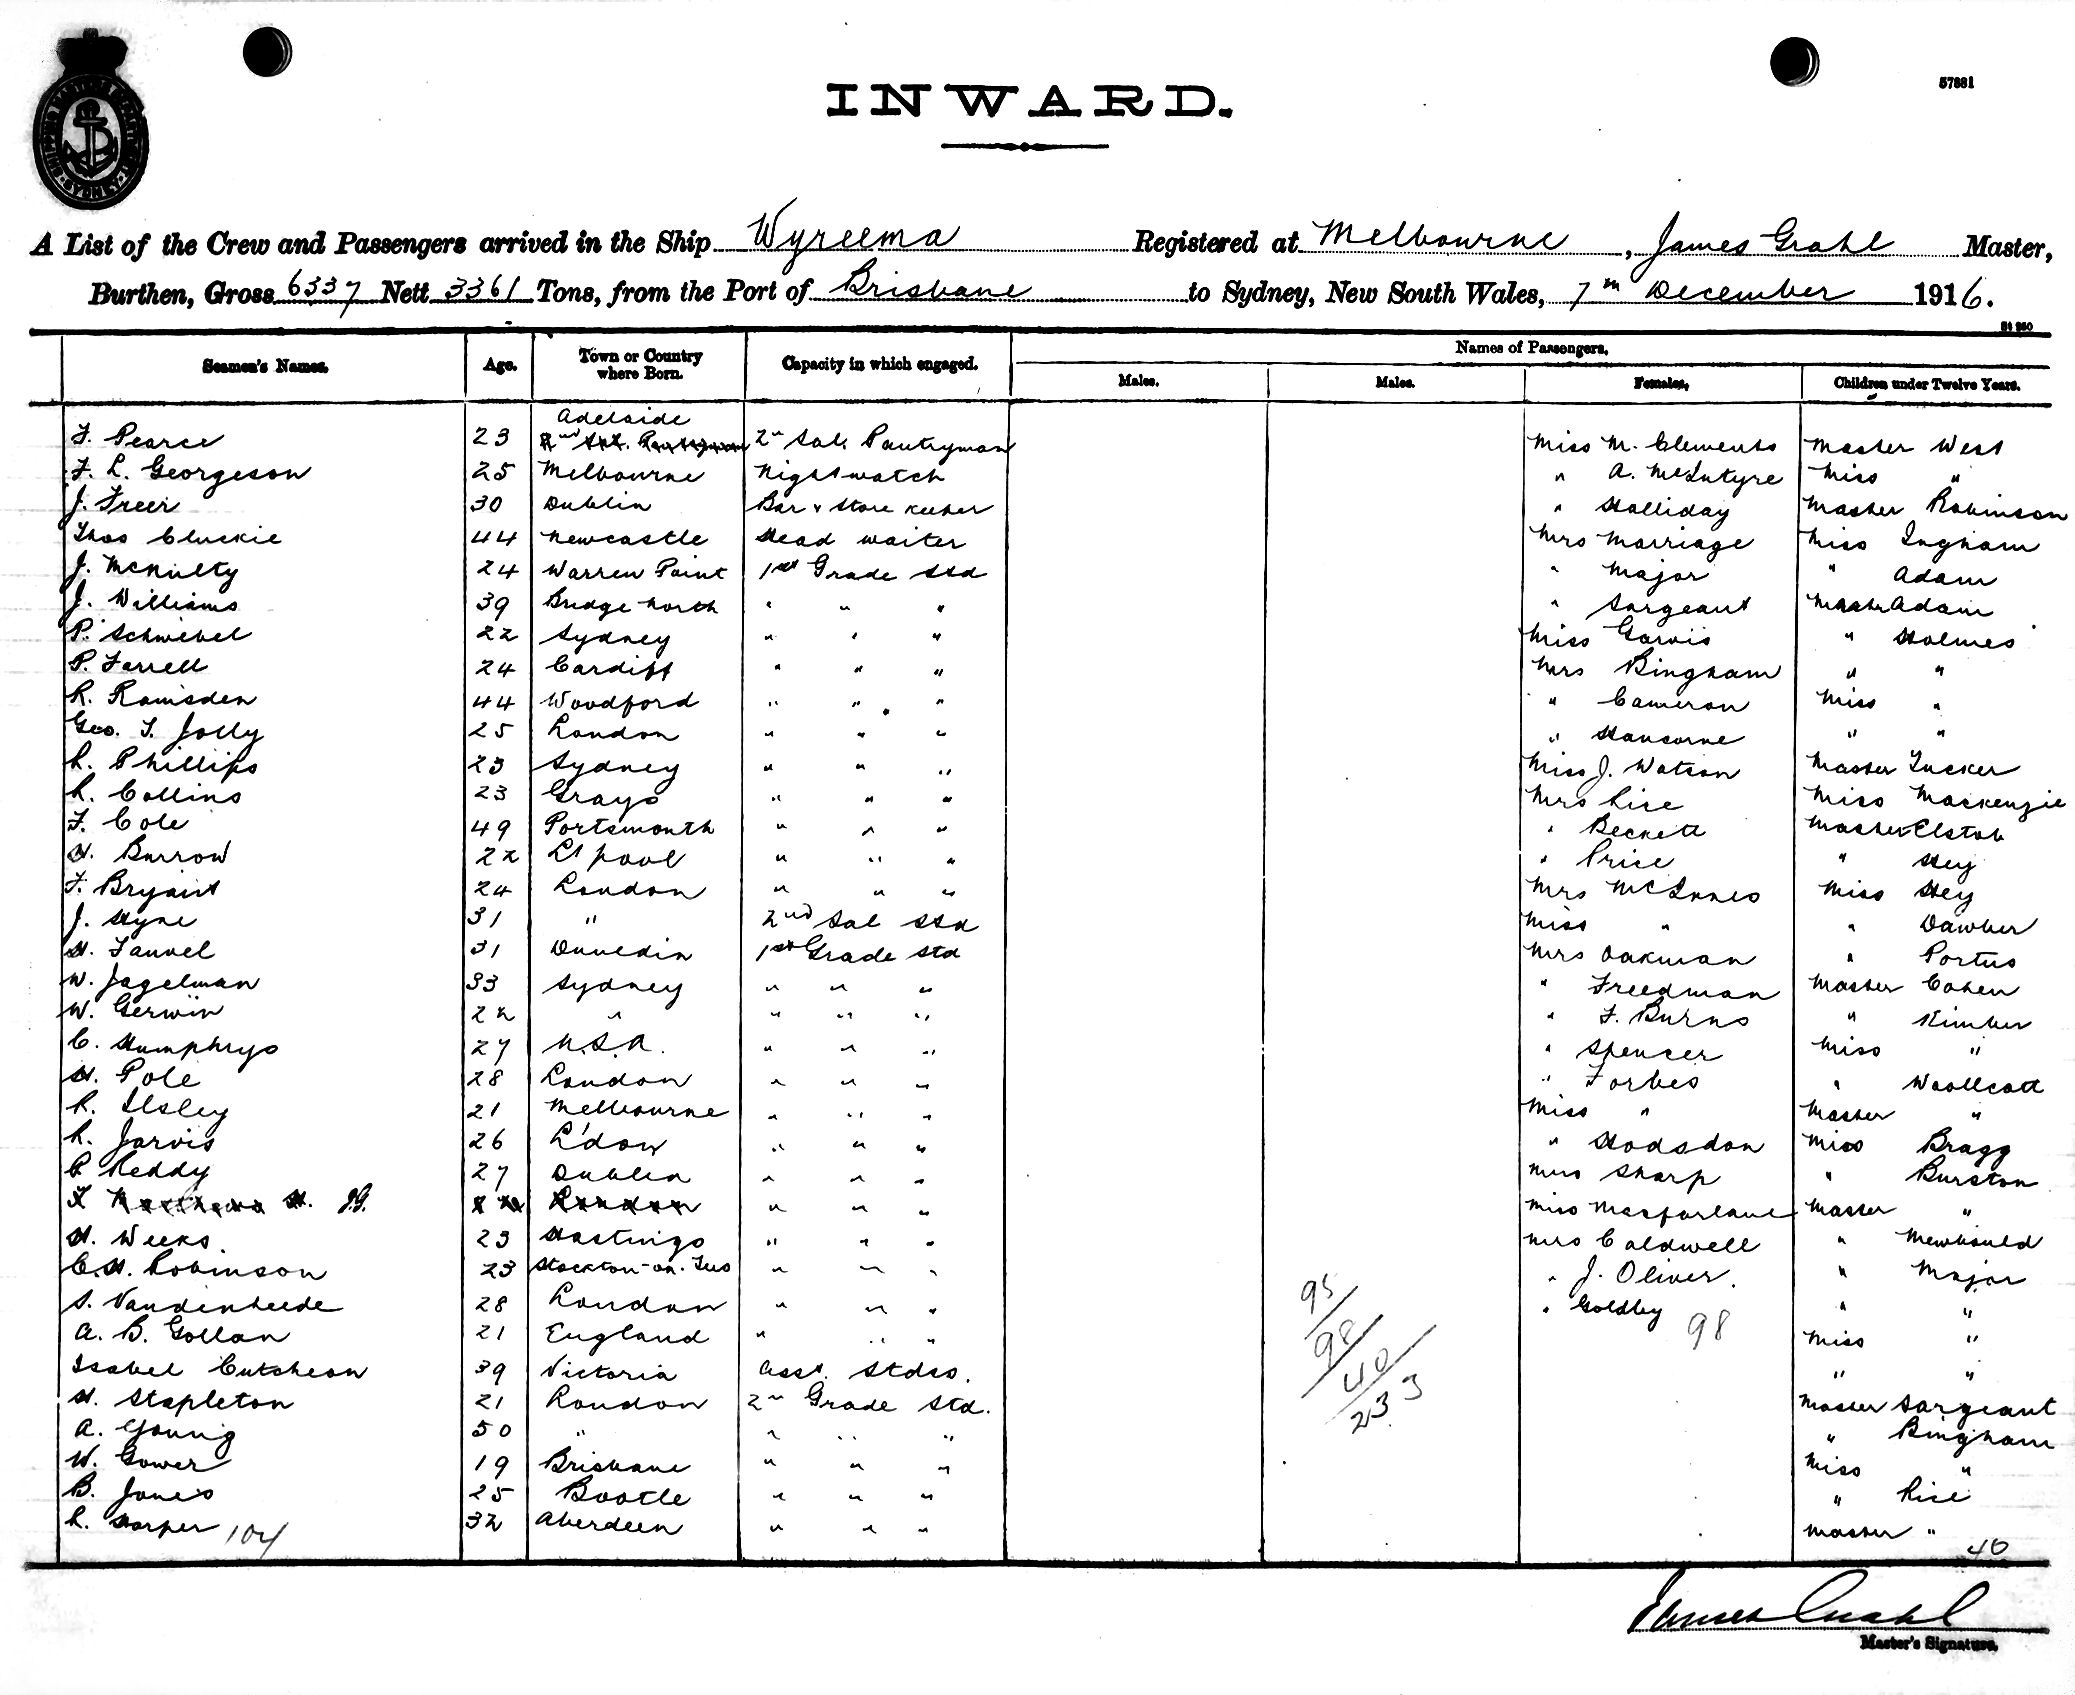 57881
INWARD.
A List of the Crew and Passengers arrived in the Ship Wyreema Registered at Melbourne, James Grahl Master,
Burthen, Gross 6337 Nett 3361 Tons, from the Port of Brisbane to Sydney, New South Wales, 7th December 1916.
Seamen's Names. Age. Town or Country where Born. Capacity in which engaged. Names of Passengers.
Males. Males. Females. Children under Twelve Years.
Adelaide
F. Pearce 23 2nd Sal. Pantryman 2n Sal. Pantryman Miss M. Clements Master West
F. L. Georgeson 25 Melbourne Nightwatch " A. McIntyre Miss "
J. Freer 30 Dublin Bar & Store Keeper " Halliday Master Robinson
Thos Cluckie 44 Newcastle Head waiter Mrs Marriage Miss Ingham
J. McNulty 24 Warren Point 1st Grade Std " Major " Adam
J. Williams 39 Bridge north " " " " Sargeant Master Adam
P. Schwebel 22 Sydney " " " Miss Garvis " Holmes
P. Farrell 24 Cardiff " " " Mrs Bingham " "
R. Ramsden 44 Woodford " " " " Cameron Miss "
Geo. T. Jolly 25 London " " " " Hansorne " "
R. Phillips 23 Sydney " " " Miss J. Watson Master Tucker
R. Collins 23 Grays " " " Mrs Rice Miss Mackenzie
F. Cole 49 Portsmouth " " " " Beckett Master Elstob
H. Burrow 22 L'pool " " " " Price " Hey
F. Bryant 24 London " " " Mrs McInnes Miss Hey
J. Hyne 31 " 2nd Sal Std Miss " " Dawber
H. Fauvel 31 Dunedin 1st Grade Std Mrs Oakman " Portus
W. Jagelman 33 Sydney " " " " Freedman Master Cohen
W. Gerwin 22 " " " " " F. Burns " Kimber
C. Humphrys 27 U.S.A. " " " " Spencer Miss "
H. Pole 28 London " " " " Forbes " Woollcott
R. Ilsley 21 Melbourne " " " Miss " Master "
R. Jarvis 26 L'don " " " " Hodsdon Miss Bragg
C. Reddy 27 Dublin " " " Mrs Sharp " Burston
F H. J.G. London " " " Miss Macfarlane Master "
H. Weeks. 23 Hastings " " " Mrs Caldwell " Mewbould
C. H. Robinson 23 Stockton-on-Tees " " " " J. Oliver. " Major
S. Vandenheede 28 London " " " " Goldby " "
98
A. B. Gollan 21 England " " " Miss "
Isabel Cutcheon 39 Victoria Asst. Stdss. " "
H. Stapleton 21 London 2n Grade Std. Master Sargeant
A. Young 50 " " " " " Bingham
W. Gower 19 Brisbane " " " Miss "
B. Jones 25 Bootle " " " " Rice
R. Harper 104 32 Aberdeen " " " Master "
95
98
40
233
40
James Grahl
Master's Signature.